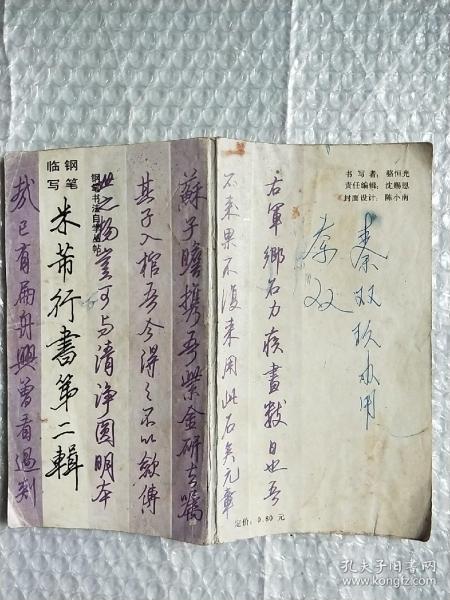 书 写 者：骆恒光
责任编辑：沈赐恩
封面设计：陈小南
秦双玖
秦双
右軍鄉石力疾書數日也吾
不来果不復来用此石矣元章
定价：0.80 元
蘇子瞻携吾紫金研去嘱
其子入棺吾今得之不以斂傳
世之物豈可与清净圆明本
钢笔书法自学丛帖
钢笔
临写
米芾行書第二輯
哉已有扁舟興曾看過剡
孔夫子旧书网
www.kongfz.com